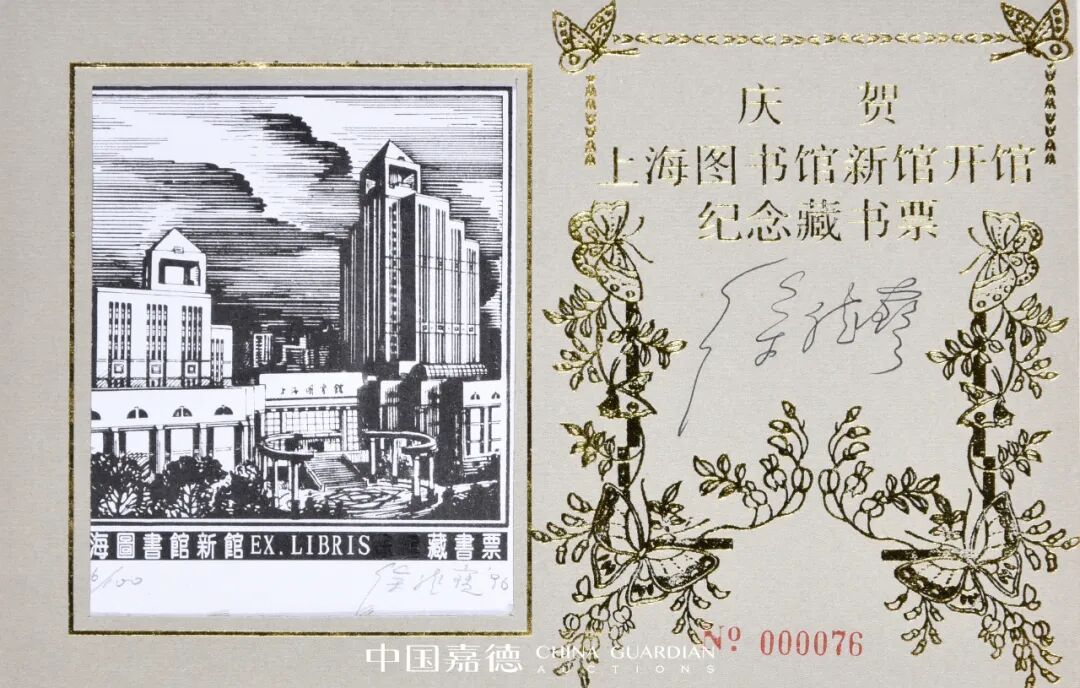 上海圖書館
海圖書館新館EX.LIBRIS 藏書票
/100
徐 '96
庆 贺
上海图书馆新馆开馆
纪念藏书票
徐
Nº 000076
中国嘉德 CHINA GUARDIAN
AUCTIONS